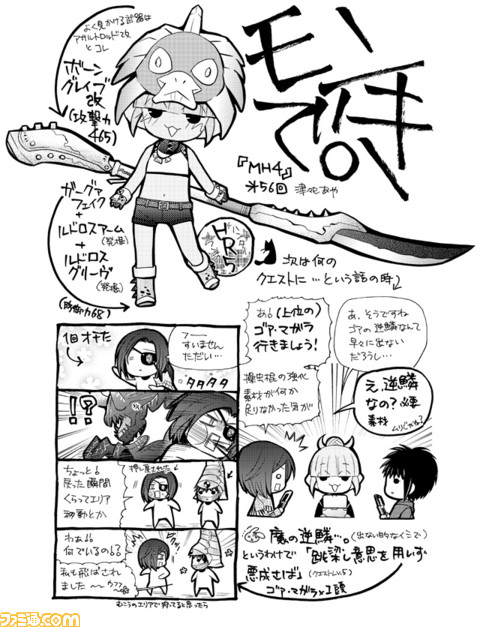 モンでき。
『MH4』
第56回
よく見かける武器は
アサルトロッド改
とコレ
ボーン
グレイブ
改
(攻撃力
465)
ガーグァ
フェイク
+
ルドロスアーム
(発掘)
+
ルドロス
グリーヴ
(発掘)
(防御力68)
HR7
次は何の
クエストに…という話の時
あ、そうですね
ゴアの逆鱗なんて
早々に出ない
だろうし…
あも(上位の)
ゴア・マガラ
行きましょう!
操虫棍の強化
素材が何か
足りなかった気が
え、逆鱗
なの?必要
素材
魔の逆鱗…。(出ない的なイミで)
というわけで
「跳梁し意思を用いず
悪成さば」
(クエストLv.5)
ゴア・マガラ×1頭
1回オチた
フー
すいません
ただい…
タタタタ
!?
ちょっとも
戻った瞬間
くらってエリア
移動とか
押し戻された
わぁぁぁ
何でいるのもう
私も飛ばされ
ました〜
ウフフ
むこうのエリアで狩ってると思ったら
ファミ通.com